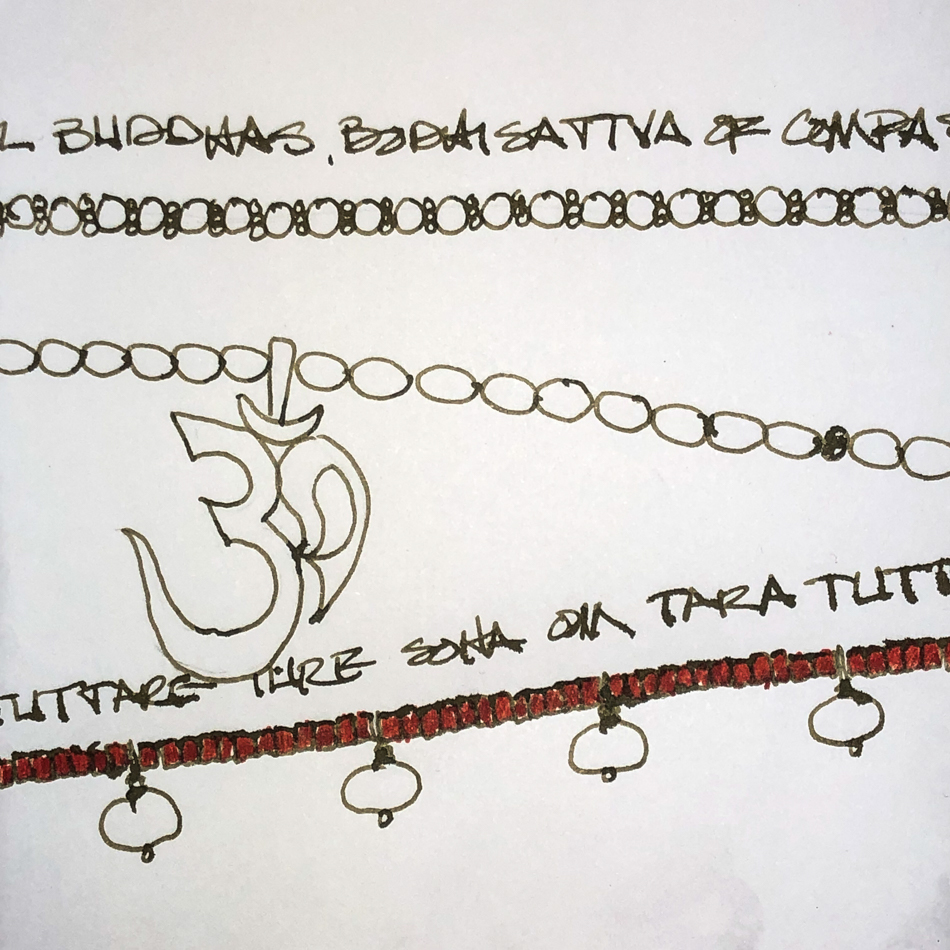 L BUDDHAS, BODHISATTVA OF COMPAS
ॐ
TUTTARE TURE SOHA OM TARA TUTT